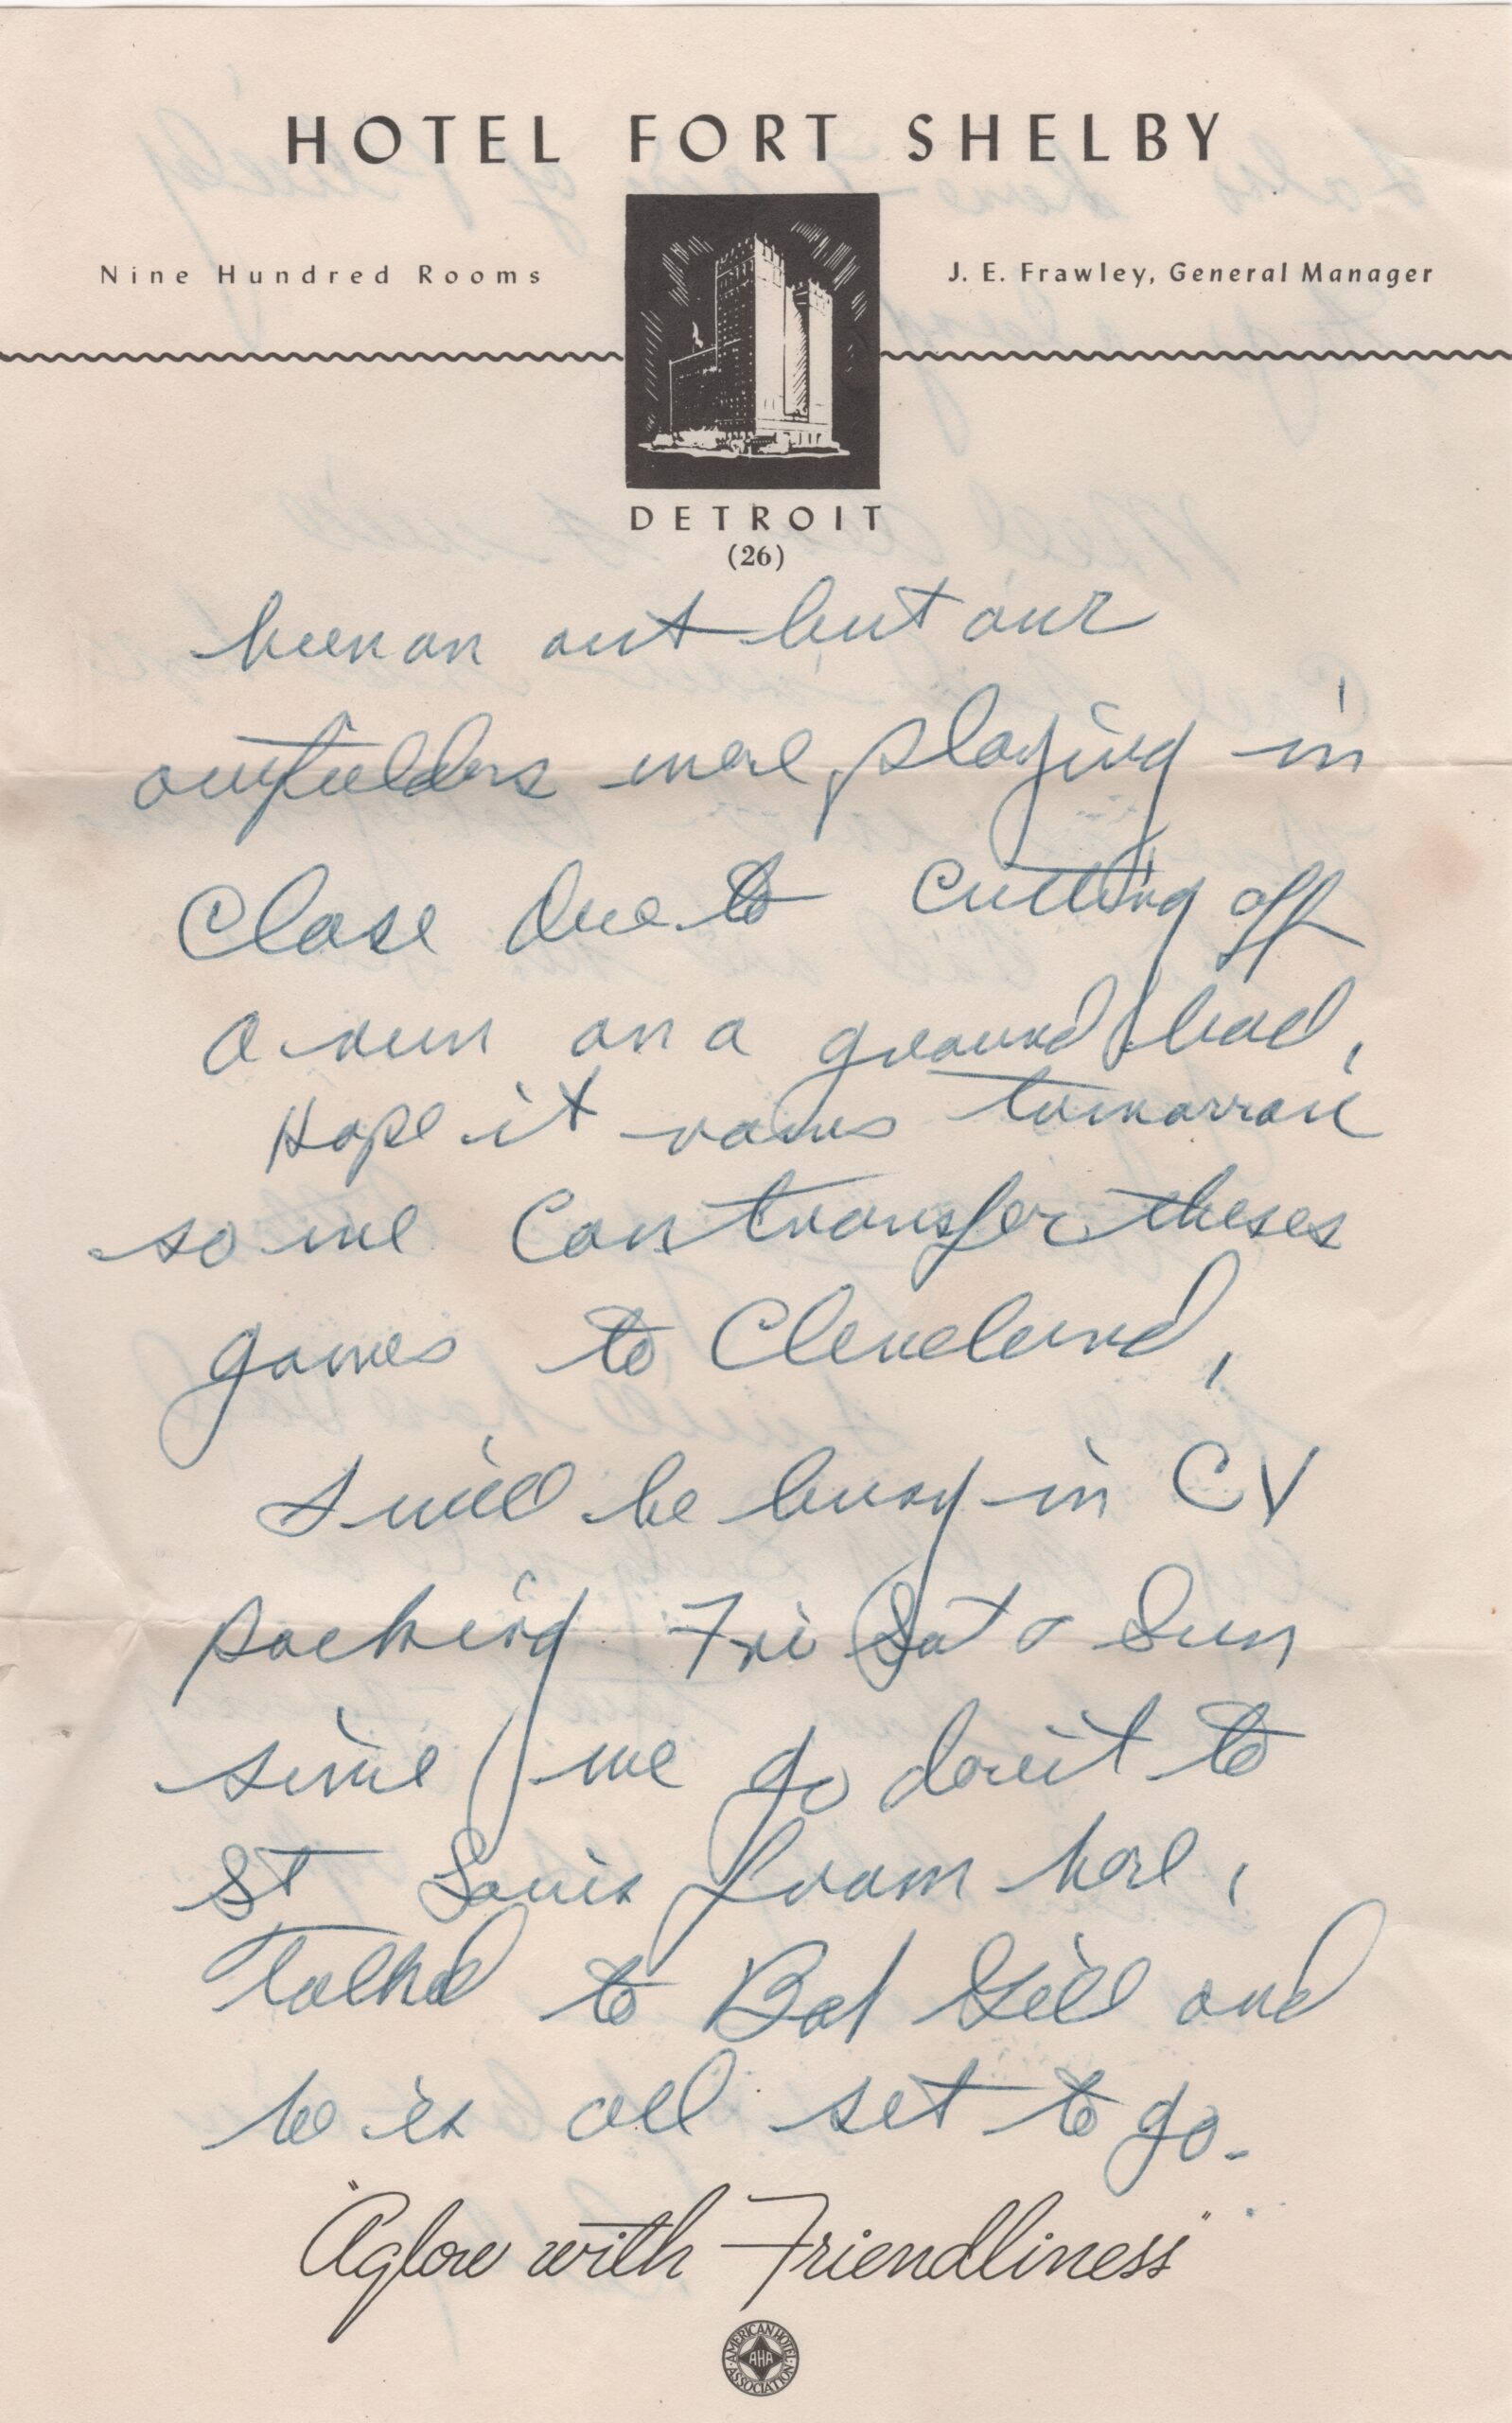 HOTEL FORT SHELBY
Nine Hundred Rooms
J. E. Frawley, General Manager
DETROIT
(26)
been an out but our
outfielders were playing in
close due to cutting off
a run on a ground ball.
Hope it rains tomorrow
so we can transfer theses
games to Cleveland.
I will be busy in CV
packing Fri Sat & Sun
sinse we go dorit to
St Louis from here.
Talked to Bob Gill and
he is all set to go.
"Aglow with Friendliness"
AMERICAN HOTEL ASSOCIATION
AHA